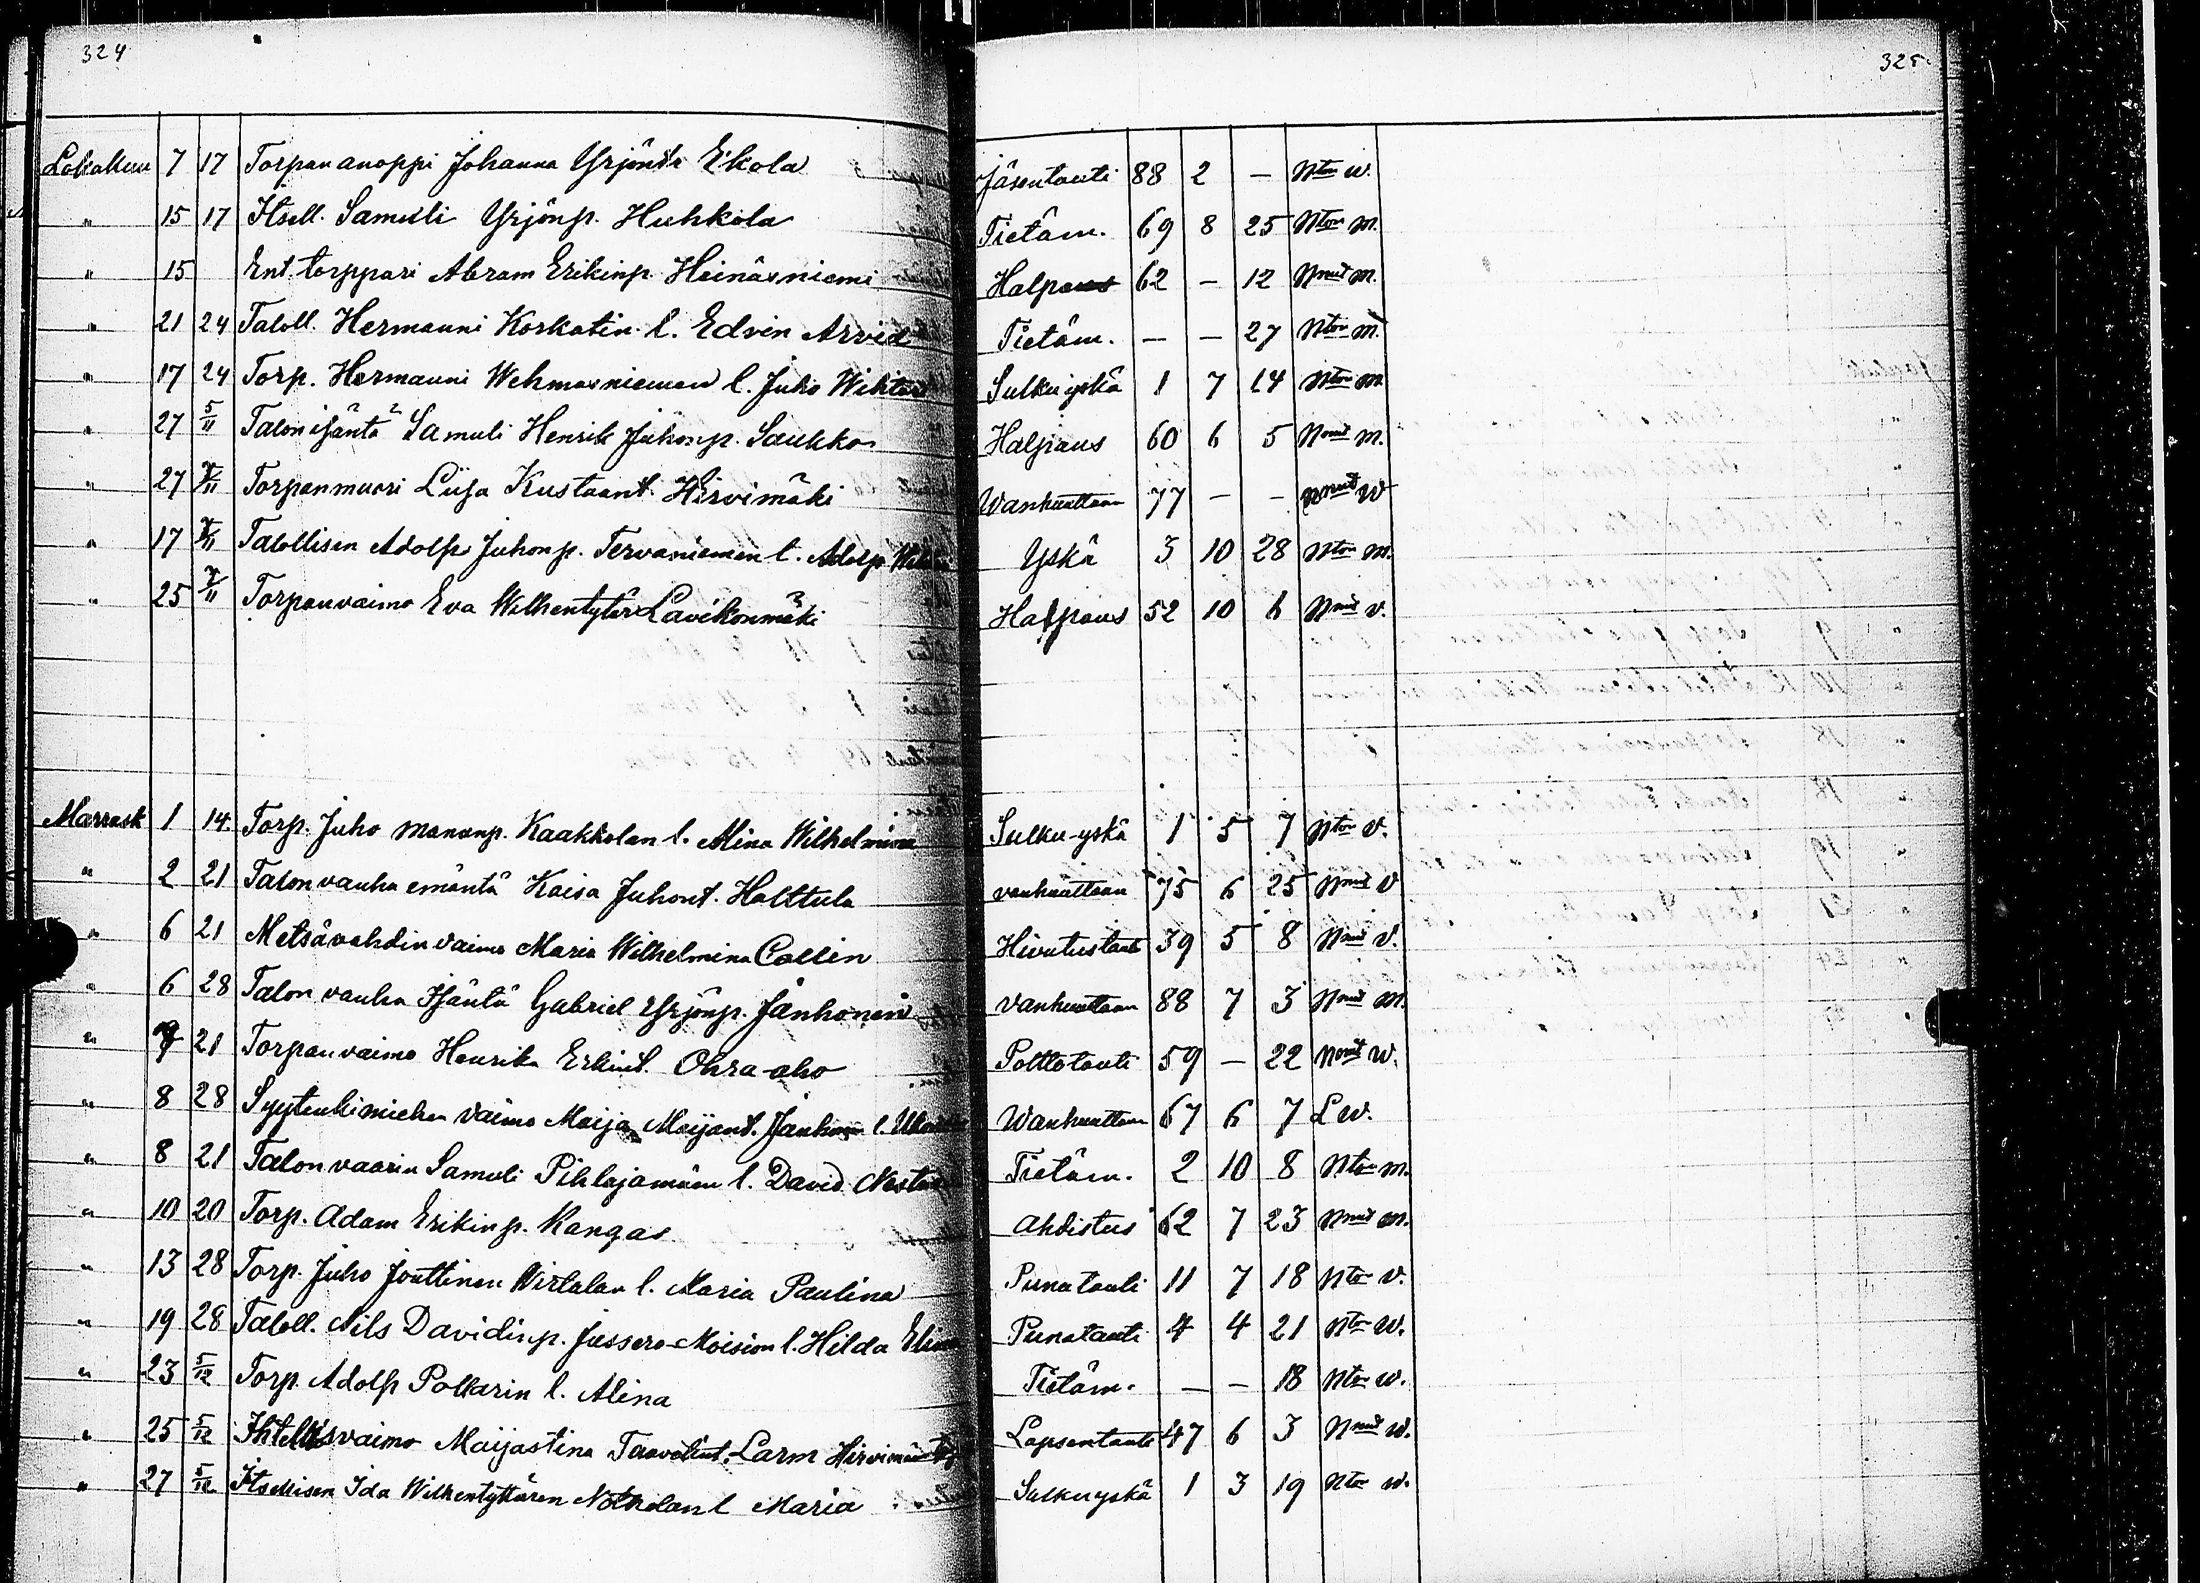 324
325
Lokakuu 7 17 Torpan anoppi Johanna Yrjönt. Eikola Jäsentauti 88 2 – Nton w.
" 15 17 Itsell. Samuli Yrjönp. Huhkola Tietäm. 69 8 25 Nton m.
" 15 Ent. torppari Abram Erikinp. Heinäsniemi Halpaus 62 – 12 Nnut m.
" 21 24 Taloll. Hermanni Korkatin l. Edvin Arvid Tietäm. – – 27 Nton m.
" 17 24 Torp. Hermanni Wehmasniemen l. Juho Wihtori Sulkuyskä 1 7 14 Nton m
" 27 5/11 Talon isäntä Samuli Henrik Juhonp. Saukko Halpaus 60 6 5 Nnut m.
" 27 7/11 Torpanmuori Liisa Kustaant. Hirvimäki Wanhuuttaan 77 – – Nnut w
" 17 7/11 Talollisen Adolf Juhonp. Tervaniemen l. Adolf Yskä 3 10 28 Nton m.
" 25 7/11 Torpanvaimo Eva Wilhentytär Lavikonmäki Halpaus 52 10 6 Nnut v.
Marrask 1 14 Torp. Juho Mananp. Kaakkolan l. Alina Wilhelmina Sulku-yskä 1 5 7 Nton v.
" 2 21 Talon vanha emäntä Kaisa Juhont. Holttula vanhuuttaan 75 6 25 Nnut v
" 6 21 Metsävahdin vaimo Maria Wilhelmina Collin Hivutustauti 39 5 8 Nnut v.
" 6 28 Talon vanha Isäntä Gabriel Yrjönp. Jänhonen Vanhuuttaan 88 7 3 Nnut m.
" 9 21 Torpanvaimo Henrika Erkint. Ohra-aho Polttotauti 59 – 22 Nnut w.
" 8 28 Syytinkimiehen vaimo Maija Maijant. Wanhuuttaan 67 6 7 L w.
" 8 21 Talon vaarin Samuli Pihlajamäen l. David Nestor Tietäm. 2 10 8 Nton m.
" 10 20 Torp. Adam Erikinp. Kangas Ahdistus 62 7 23 Nnut m.
" 13 28 Torp. Juho Jouttinen Wirtalan l. Maria Paulina Punatauti 11 7 18 Nton v.
" 19 28 Taloll. Nils Davidinp. Jussero-Moision l. Hilda Elina Punatauti 4 4 21 Nton w.
" 23 5/12 Torp. Adolf Pollarin l. Alina Tietäm. – – 18 Nton w.
" 25 5/12 vaimo Maijastina Taavetint. Larm Lapsentauti 47 6 3 Nnut w.
" 27 5/12 Itsellisen Ida Wilhentyttären Notkolan l Maria Sulkuyskä 1 3 19 Nton w.